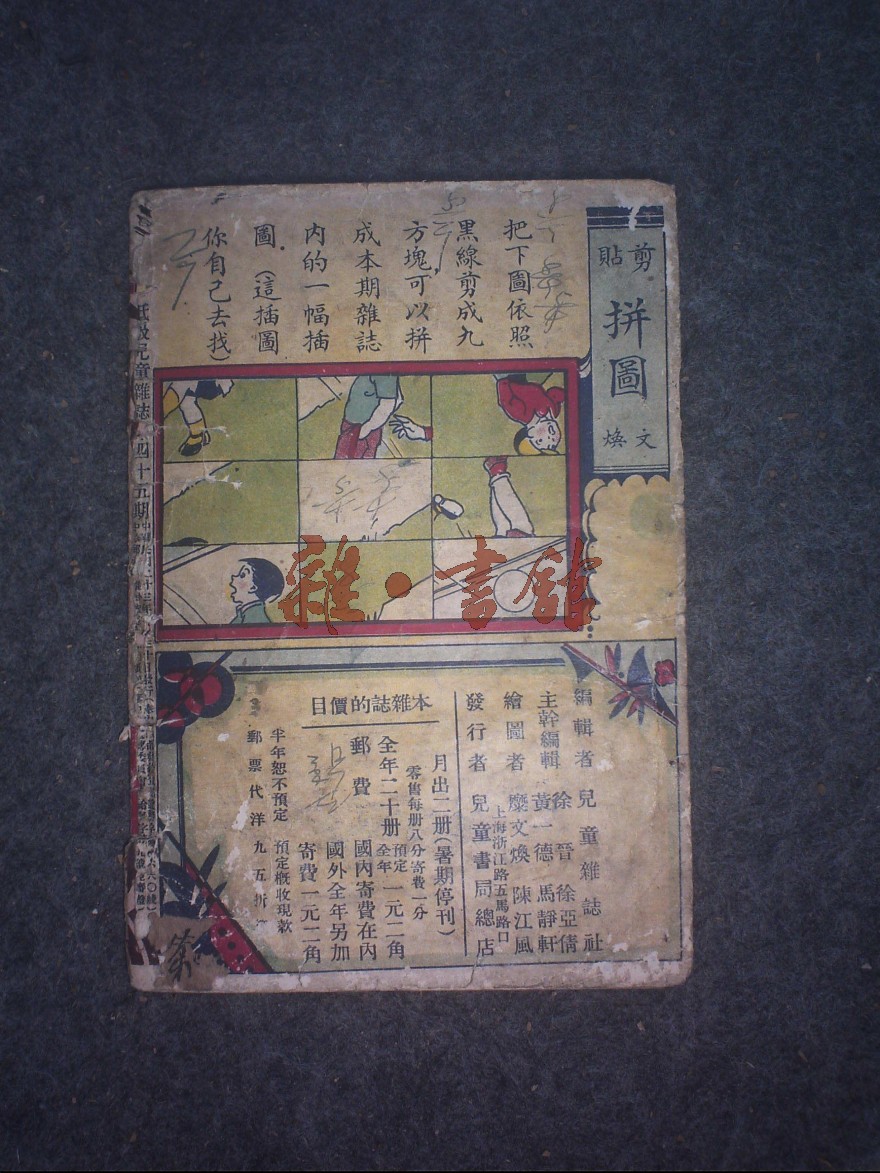 剪貼
拼圖
文煥
把下圖依照
黑線剪成九
方塊,可以拼
成本期雜誌
內的一幅插
圖(這插圖
你自己去找)
雜·書館
編輯者 兒童雜誌社
主幹編輯 徐晉 徐亞倩
黃一德 馬靜軒
繪圖者 糜文煥 陳江風
上海浙江路五馬路口
發行者 兒童書局總店
本雜誌的價目
月出二册(暑期停刊)
零售每册八分寄費一分
全年二十册 預定全年 一元二角
郵費 國內寄費在內
國外全年另加
寄費一元二角
半年恕不預定 預定概收現款
郵票代洋九五折
低級兒童雜誌 四十五期